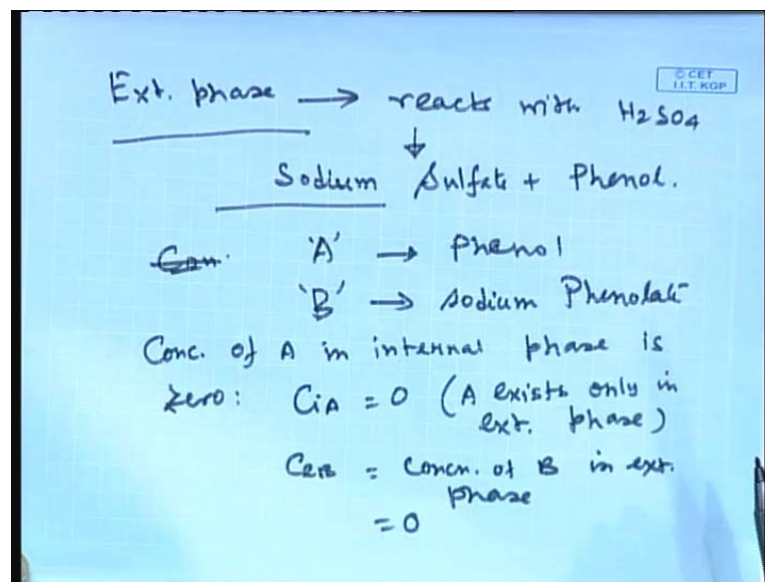 © CET
I.I.T. KGP
Ext. phase → reacts with H2SO4
↓
Sodium Sulfate + Phenol.
'A' → phenol
'B' → sodium Phenolate
Conc. of A in internal phase is
zero: CiA = 0 (A exists only in
ext. phase)
CeB = Concn. of B in ext.
phase
= 0